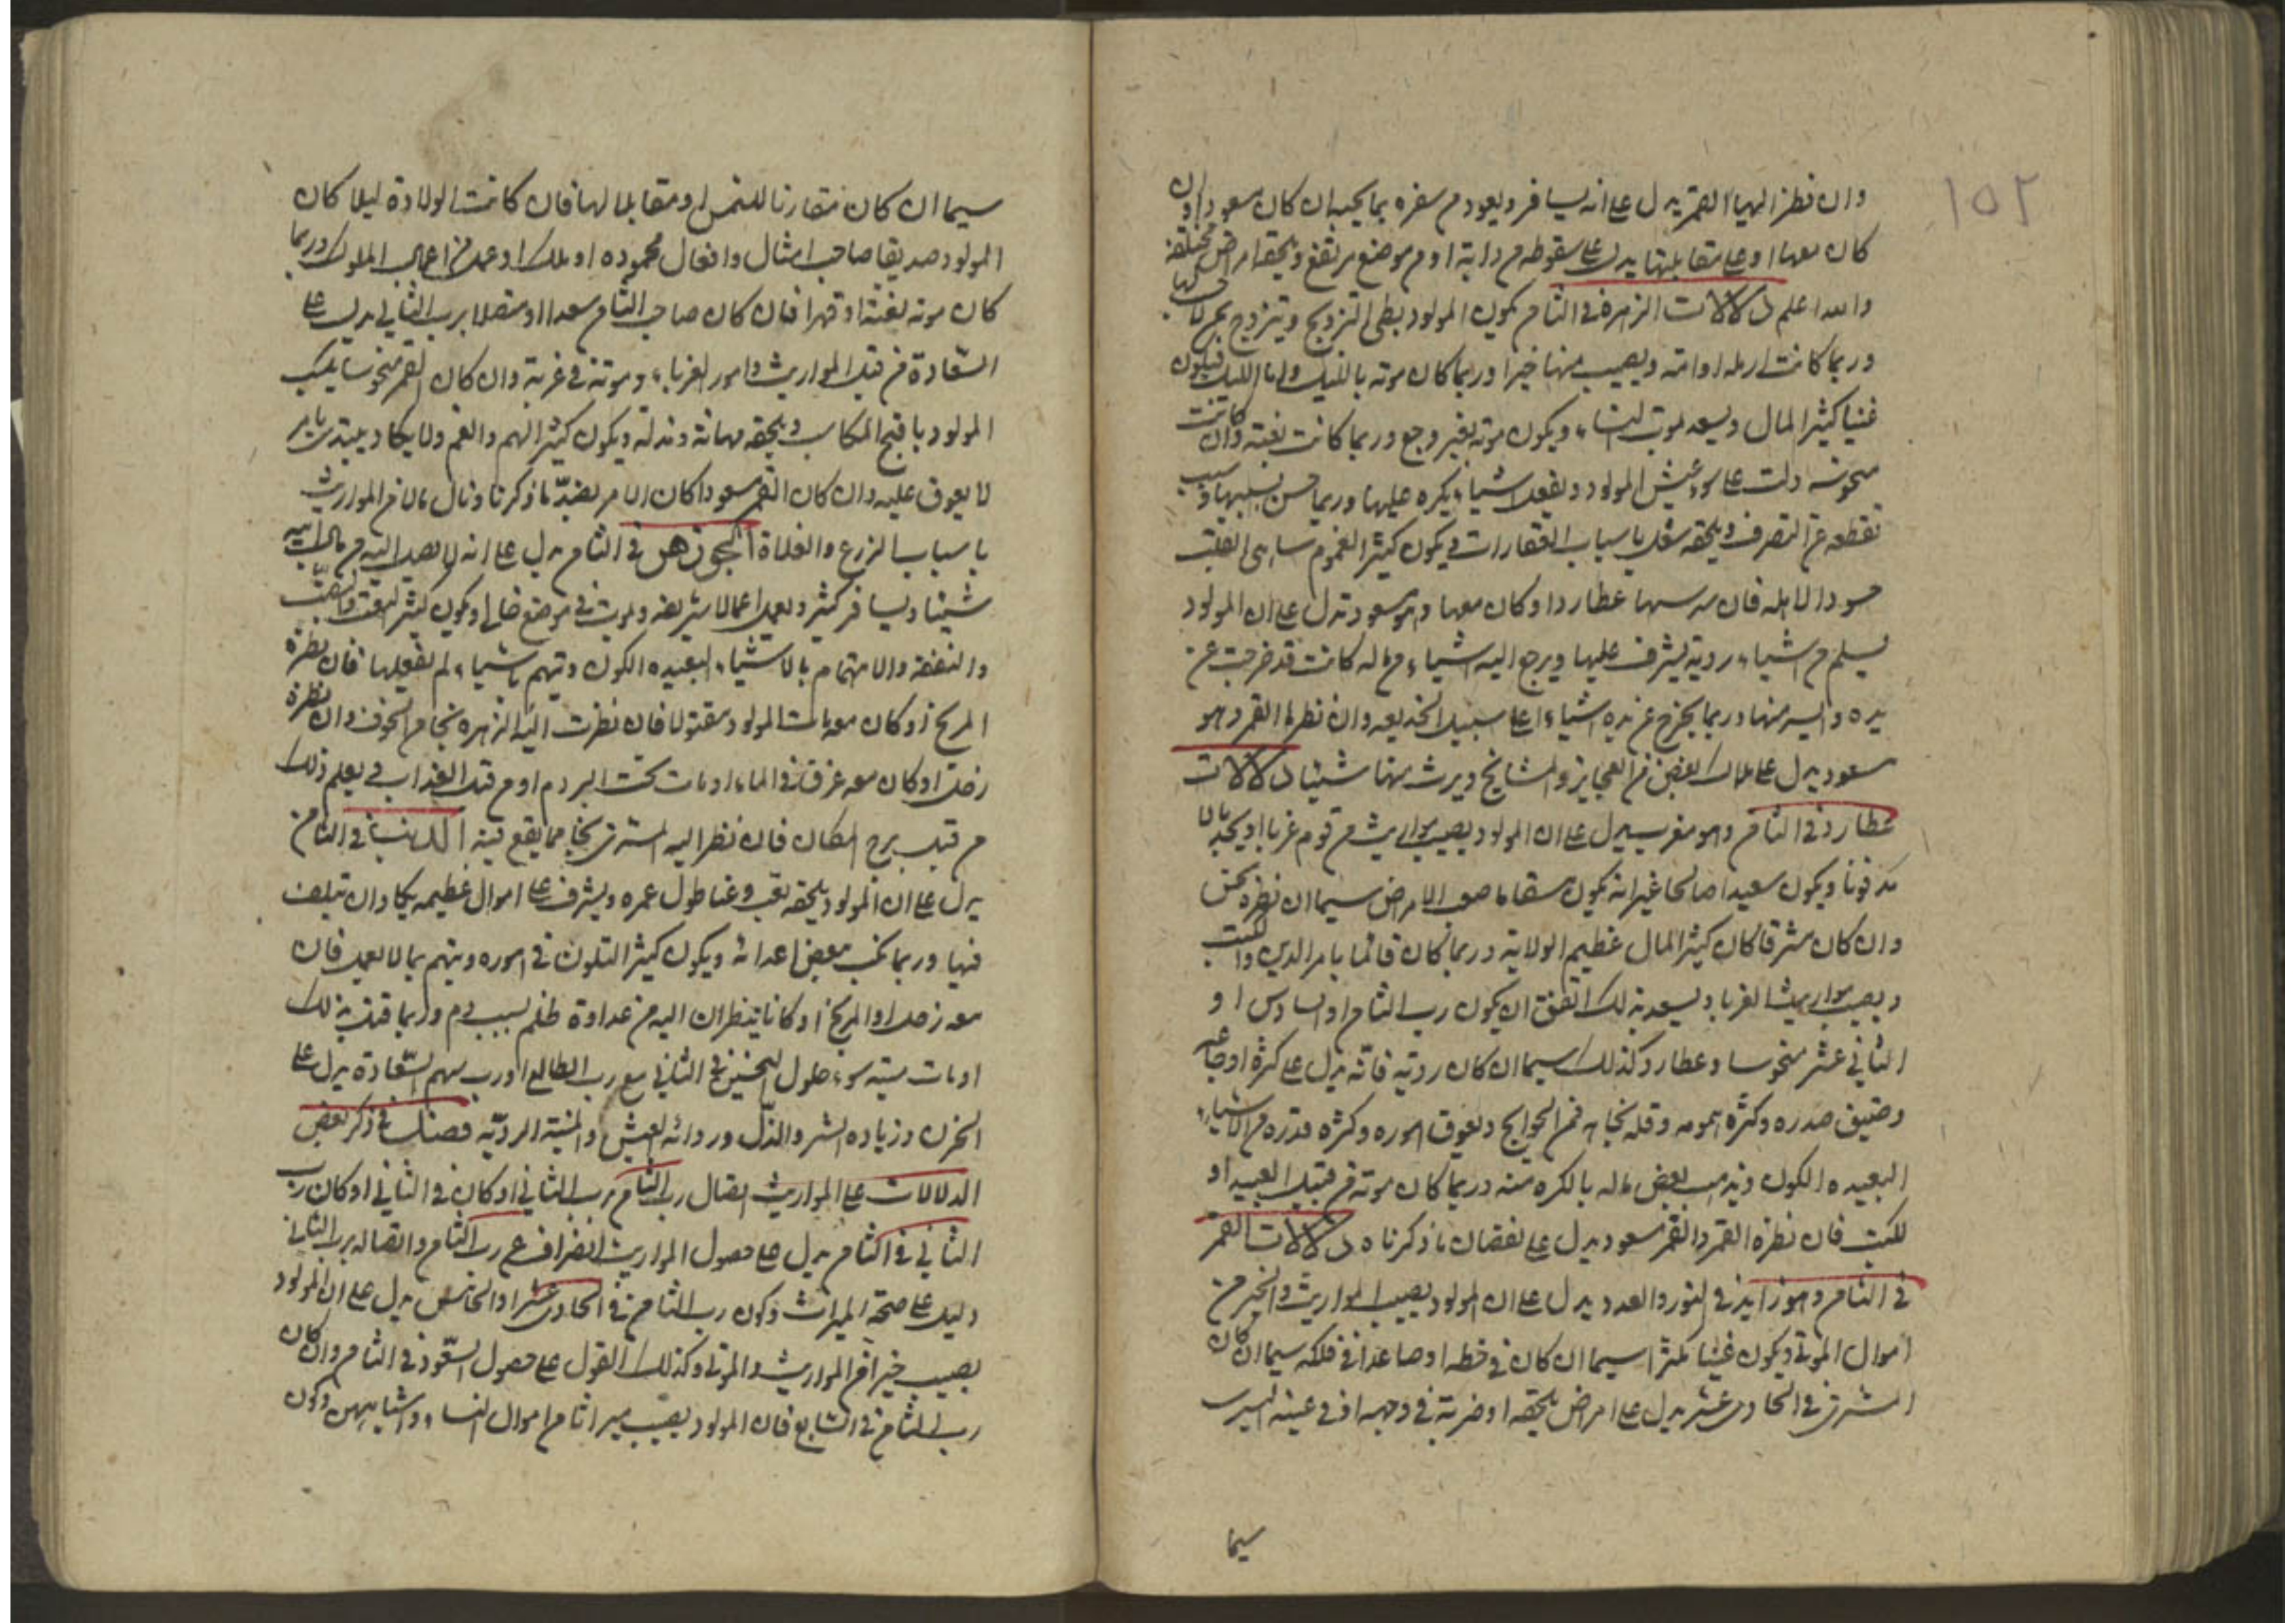 ١٥٢
وان نظر اليها القمر يدل على انه يسافر ويعود من سفره بما يحب ان كان مسعودا وان
كان معها او على مقابلتها يدل على سقوطه من دابة او من موضع مرتفع ويلحقه امراض مختلفة
والله اعلم دلالات الزهرة في الثامن يكون المولود بطى التزويج ويتزوج بمن لا
وربما كانت ارمله او امة ويصيب منها خيرا وربما كان موته بالليل واما الليل فيكون
غنيا كثير المال ويسعد لموت النساء ويكون موته بغير وجع وربما كانت بغتة وان كانت
منحوسة دلت على سوء عيش المولود ويفعل اشياء يكره عليها وربما حبس بسببها
تقطعه عن التصرف ويلحقه شغل باسباب العقارات ويكون كثير الغموم ساهى القلب
حسودا لاهله فان عطاردا وكان معها وهو مسعود تدل على ان المولود
يسلم من اشياء ردية يشرف عليها ويرجع اليه اشياء من ماله كانت قد خرجت عن
يده وايس منها وربما يخرج عن يده اشياء على سبيل الخديعه وان نظرها القمر وهو
مسعود يدل على هلاك بعض من العجايز والمشايخ ويرث منها شيئا دلالات
عطارد في الثامن وهو مغرب يدل على ان المولود يصيب مواريث من قوم غربا او يجد مالا
مدفونا ويكون سعيدا صالحا غير انه يكون مسقاما صعب الامراض سيما ان نظره نحس
وان كان مشرقا كان كثير المال عظيم الولاية وربما كان قائما بامر الدين والكتب
ويصيب مواريث الغربا ويسعد بذلك اتفق ان يكون رب الثامن او السادس او
الثاني عشر منحوسا وعطارد كذلك سيما ان كان ردية فانه يدل على كثرة اوجاعه
وضيق صدره وكثرة همومه وقلة نجاحه في الحوايج وتعوق اموره وكثرة من الاشياء
البعيده الكون ويذهب بعض ماله بالكره منه وربما كان موته من قبل العبيد او
للكتب فان نظره القمر والقمر مسعود يدل على نقصان ما ذكرناه دلالات القمر
في الثامن وهو زايد في النور والعدد يدل على ان المولود يصيب المواريث والخير من
اموال الموتى ويكون غنيا مكثرا سيما ان كان في حظه او صاعدا في فلكه سيما ان كان
المشترى في الحادى عشر يدل على امراض يلحقه او ضربة في وجهه او في عينه اليسرى
سيما
سيما ان كان مقارنا للشمس او مقابلا لها فان كانت الولادة ليلا كان
المولود صديقا صاحب امثال وافعال محموده او ملك او عمل من اعمال الملوك وربما
كان موته بغتة او قهرا فان كان صاحب الثامن سعدا او متصلا برب الثاني يدل على
السعادة من قبل المواريث وامور الغرباء وموته في غربة وان كان القمر منحوسا يكسب
المولود باقبح المكاسب ويلحقه مهانة ومذلة ويكون كثير الهم والغم ولا يكاد يبتدى بامر
لا يعوق عليه وان كان القمر مسعودا كان الامر بضد ما ذكرنا ونال مالا من المواريث
باسباب الزرع والغلاة الجوزهر في الثامن يدل على انه لا يصل اليه من مال ابيه
شيئا ويسافر كثير ويعمل اعمالا شريفه ويموت في موضع خالى ويكون كثير التعب والنصب
والنفقة والاهتمام بالاشياء البعيده الكون ويتهم باشياء لم يفعلها فان نظره
المريخ او كان معه مات المولود مقتولا فان نظرت اليه الزهره نجا من الخوف وان نظره
زحل او كان معه غرق في الماء او مات تحت الردم او من قبل العذاب في يعلم ذلك
من قبل برج المكان فان نظر اليه المشترى نجا مما يقع فيه الذنب في الثامن
يدل على ان المولود يلحقه تعب وعنا طول عمره ويشرف على اموال عظيمه يكاد ان تتلف
فيها وربما نكب بعض اعدائه ويكون كثير التلون في اموره ويتهم بما لا يعمل فان
معه زحل او المريخ او كانا ينظران اليه من عداوة ظلم بسبب دم وربما قتل بذلك
او مات ميتة سوء حلول النحسين في الثاني مع رب الطالع او رب سهم السعادة يدل على
الحزن وزياده الشر والذل ورداءة العيش والميتة الردية فصل في ذكر بعض
الدلالات على المواريث اتصال رب الثامن برب الثاني او كان في الثاني او كان رب
الثاني في الثامن يدل على حصول المواريث انصراف عن رب الثامن واتصاله برب الثاني
دليل على صحة الميراث وكون رب الثامن في الحادى عشر او الخامس يدل على ان المولود
يصيب خيرا من المواريث والموتى وكذلك القول على حصول السعود في الثامن وان كان
رب الثامن في السابع فان المولود يصيب ميراثا من اموال النساء واشباههن وكون